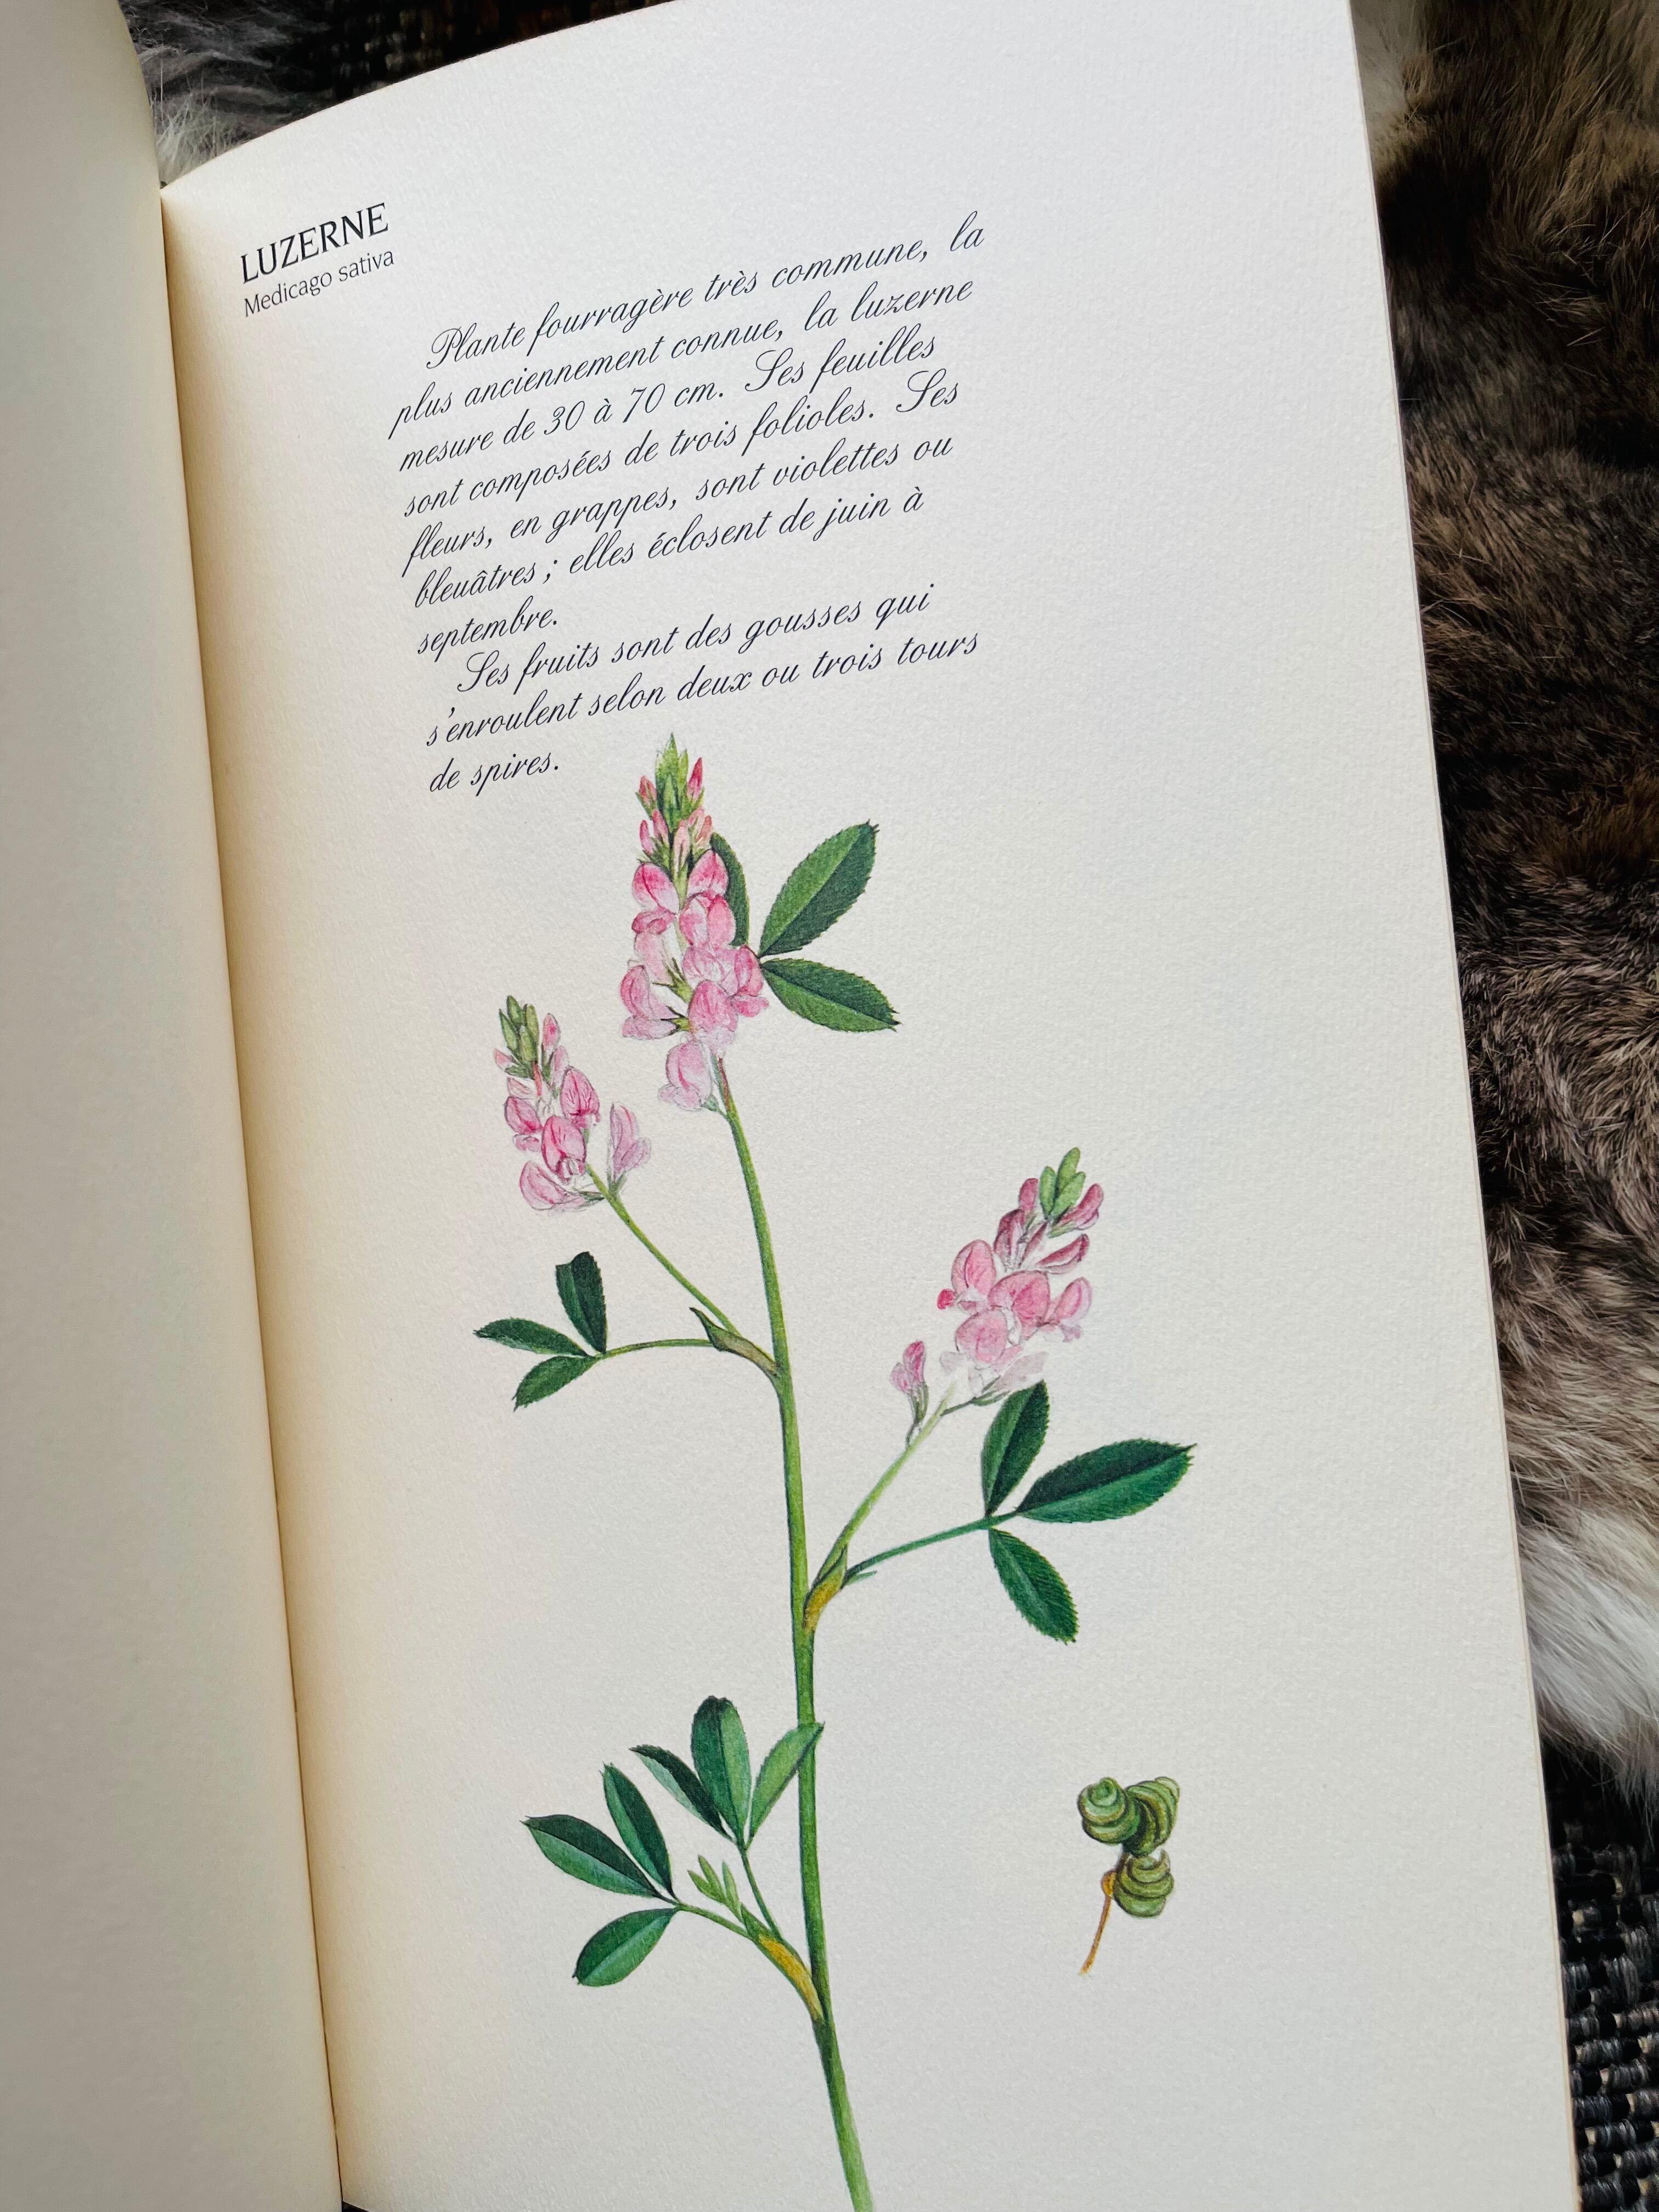 LUZERNE
Medicago sativa
Plante fourragère très commune, la
plus anciennement connue, la luzerne
mesure de 30 à 70 cm. Ses feuilles
sont composées de trois folioles. Ses
fleurs, en grappes, sont violettes ou
bleuâtres ; elles éclosent de juin à
septembre.
Ses fruits sont des gousses qui
s'enroulent selon deux ou trois tours
de spires.